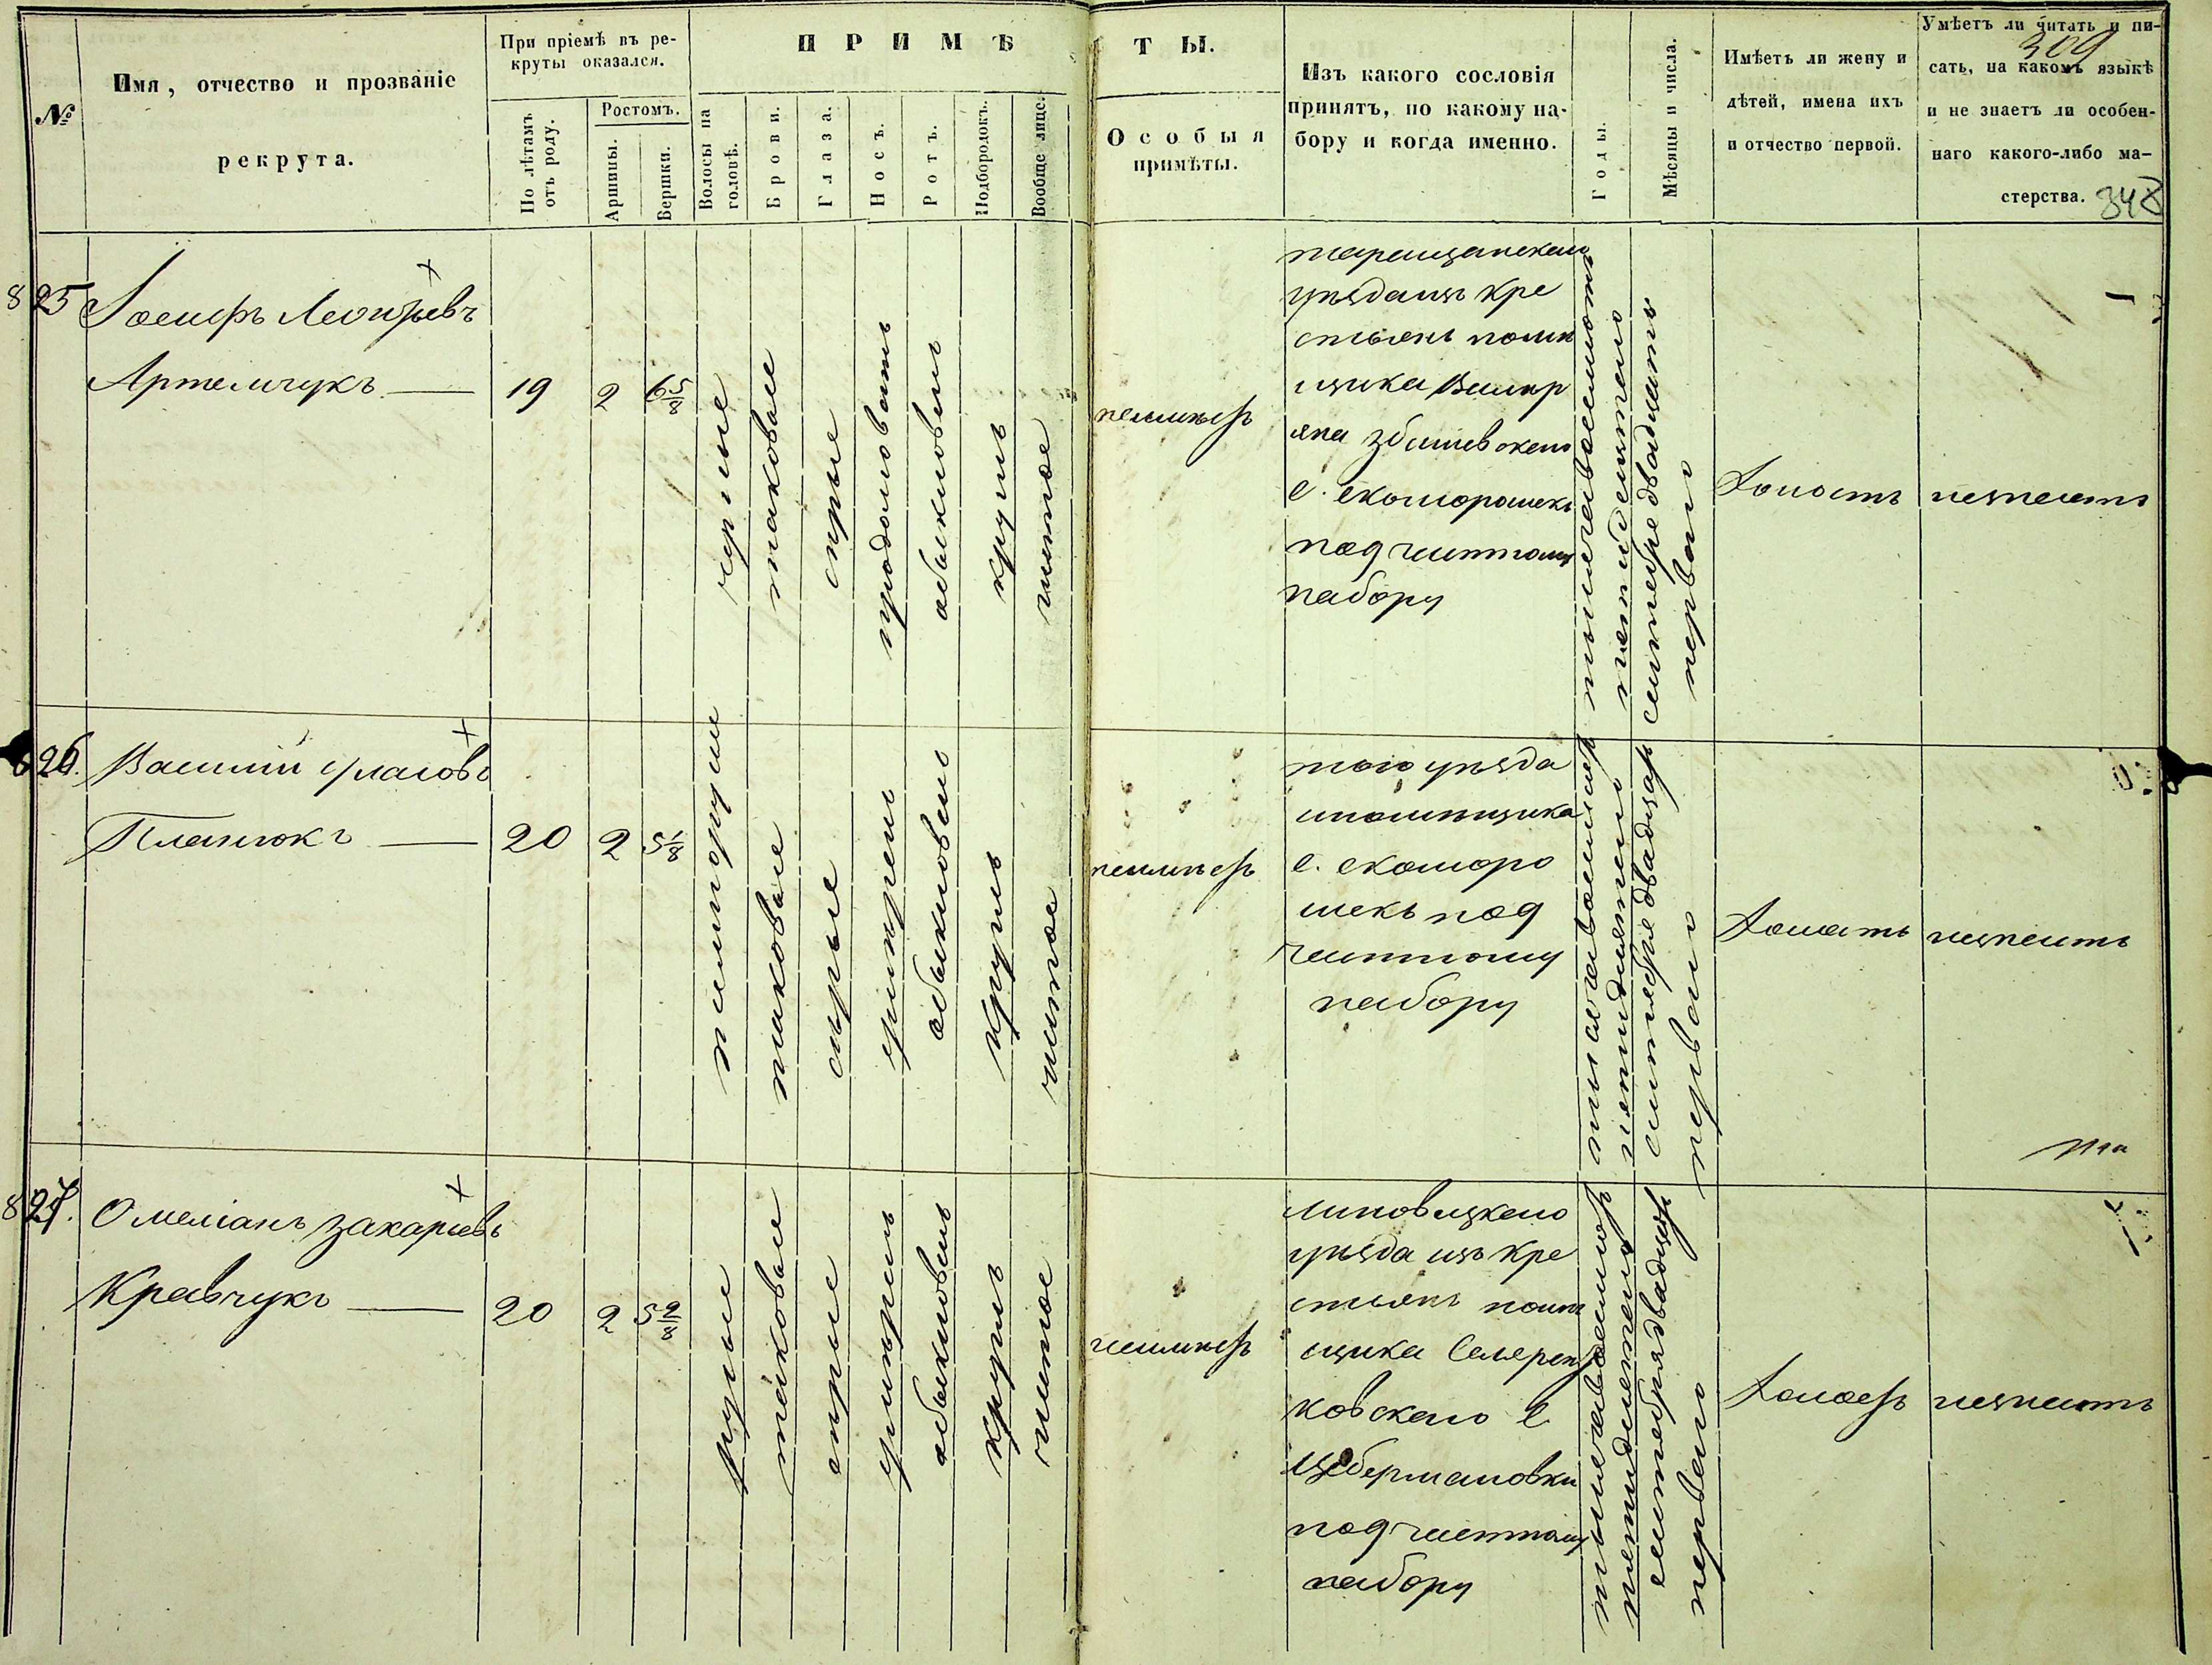 №
Имя, отчество и прозваніе
рекрута.
При пріемѣ въ ре-
круты оказался.
По лѣтамъ
отъ роду.
Ростомъ.
Аршины.
Вершки.
ПРИМѢТЫ.
Волосы на
головѣ.
Брови.
Глаза.
Носъ.
Ротъ.
Подбородокъ.
Вообще лице.
Особыя
примѣты.
Изъ какого сословія
принятъ, по какому на-
бору и когда именно.
Годы.
Мѣсяцы и числа.
Имѣетъ ли жену и
дѣтей, имена ихъ
и отчество первой.
Умѣетъ ли читать и пи-
сать, на какомъ языкѣ
и не знаетъ ли особен-
наго какого-либо ма-
стерства.
309
348
825
Іосифъ Леонтьевъ
Артемчукъ
19
2
6 5/8
русые
таковые
сѣрые
продолговатъ
обыкновенъ
круглъ
чистое
неимѣетъ
таращанскаго
уѣзда изъ кре
стьянъ помѣ
щика
с. скоморошекъ
под частному
набору
тысяча восемьсотъ
сентября двадцать
перваго
холостъ
незнаетъ
826.
Василій Уласовъ
Планюкъ
20
2
5 1/8
таковые
сѣрые
умѣренъ
обыкновенъ
круглъ
чистое
неимѣетъ
того уѣзда
ипомѣщика
с. скоморо
шекъ под
частному
набору
сентября двадцать
перваго
холостъ
незнаетъ
827.
Омеліанъ Захаріевъ
Кравчукъ
20
2
5 2/8
русые
таковые
сѣрые
умѣренъ
обыкновенъ
круглъ
чистое
неимѣетъ
липовецкаго
уѣзда изъ кре
стьянъ помѣ
щика
ковскаго с
Цебермановки
под частному
набору
сентября двадцать
перваго
холостъ
незнаетъ